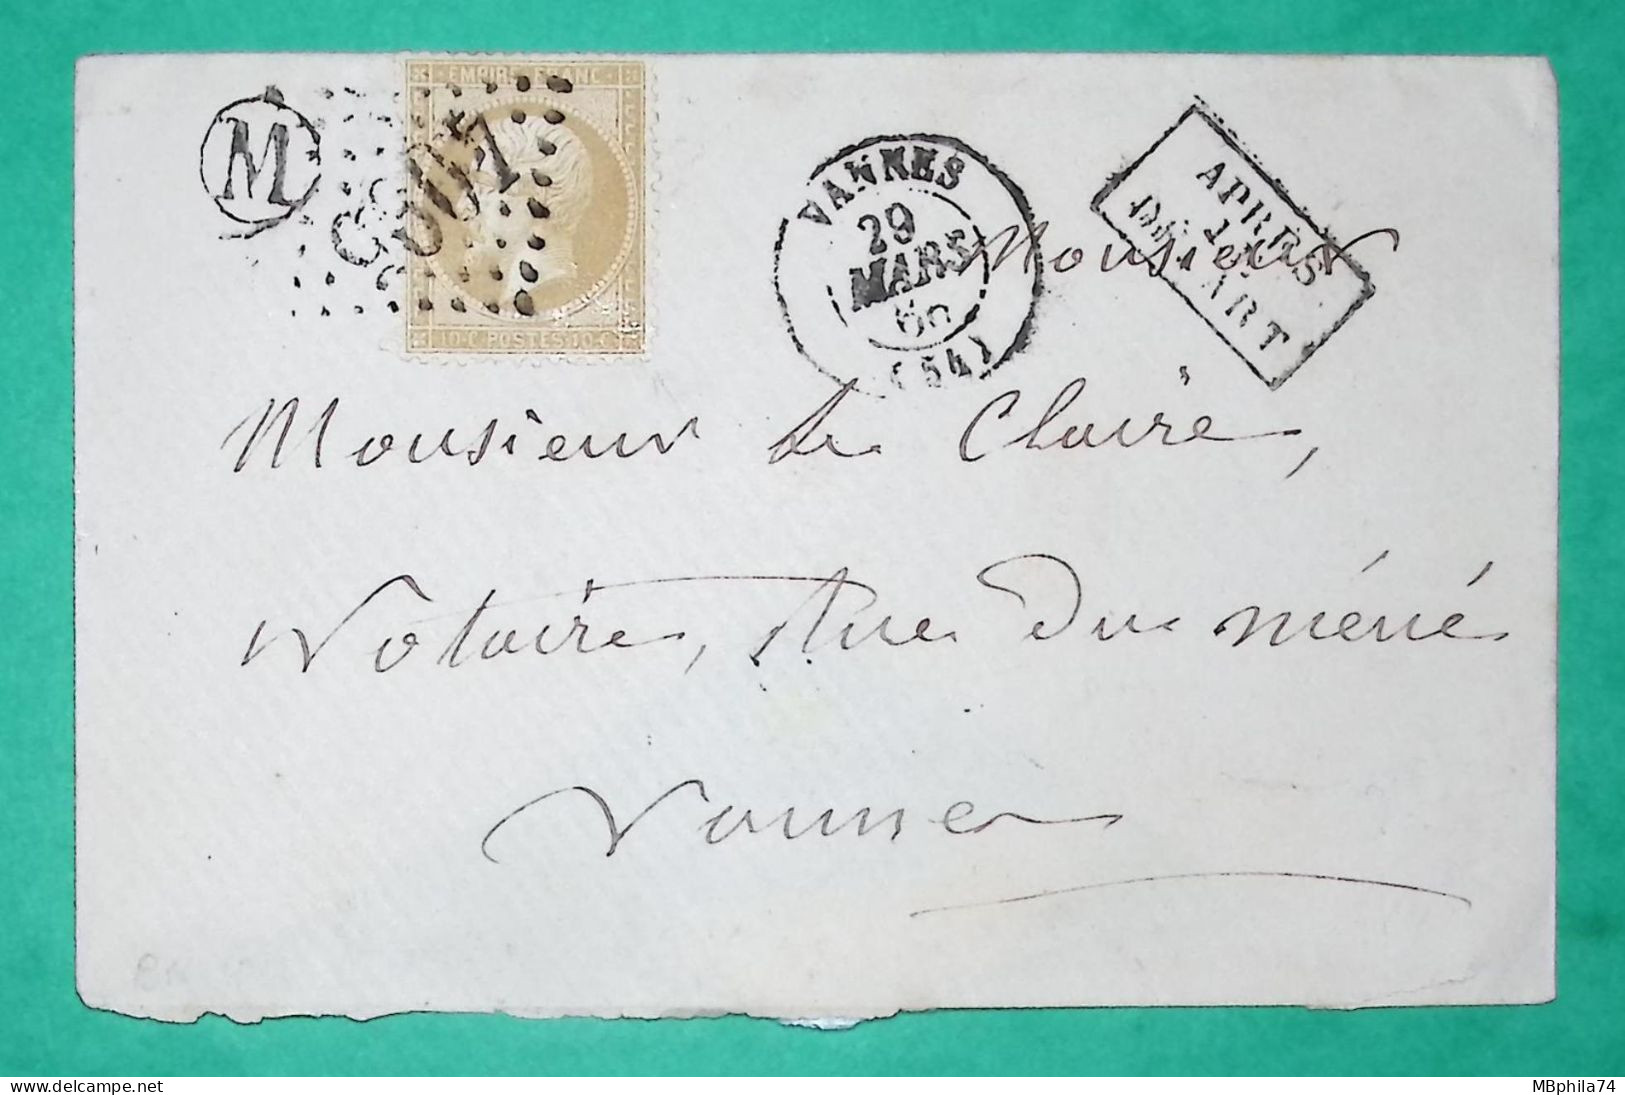 EMPIRE FRANC
M
10·C POSTES 10·C
VANNES
29
MARS
(54)
APRES
LE
DEPART
Monsieur
Monsieur Le Claire,
Notaire, Rue Du Méné
Vannes
MBphila74
www.delcampe.net